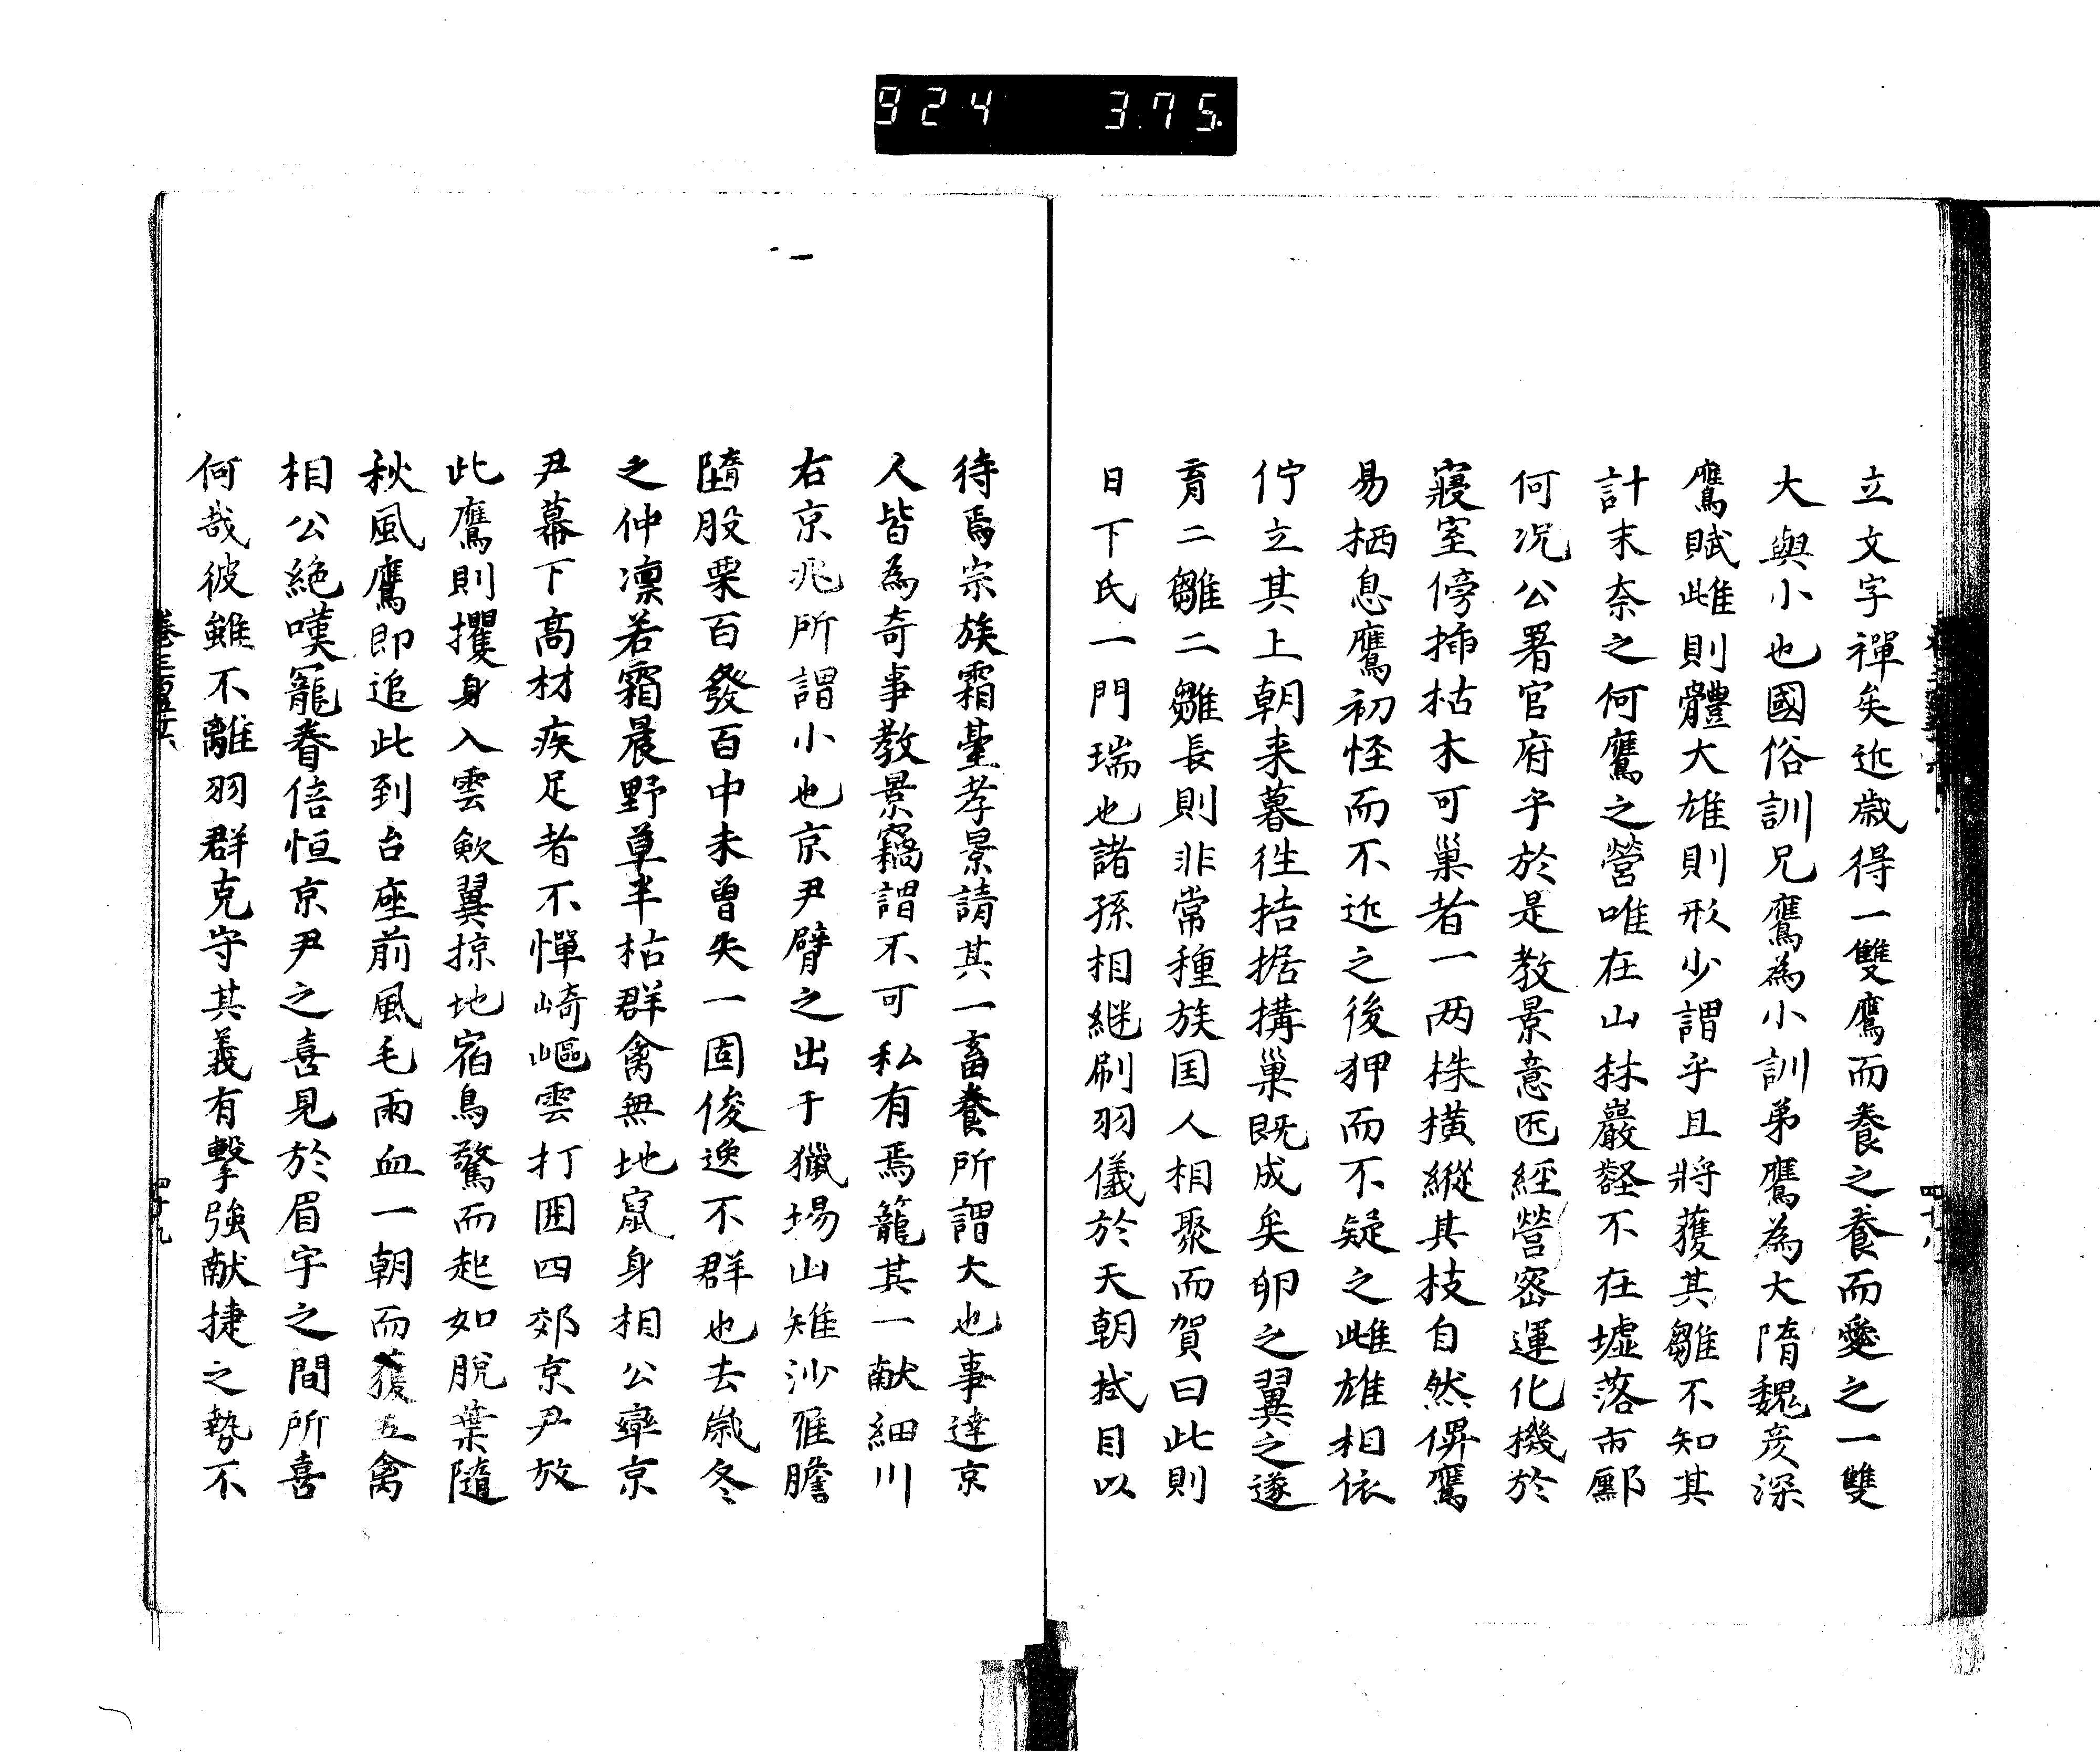 924 3.75.
立文字禪矣近歳得一雙鷹而養之養而愛之一雙
大與小也國俗訓兄鷹為小訓弟鷹為大隋魏彦深
鷹賦雌則體大雄則形少謂乎且將獲其雛不知其
計末奈之何鷹之營唯在山林巖壑不在墟落市鄽
何况公署官府乎於是教景意匠經營密運化機於
寢室傍揷枯木可巢者一两株横縱其枝自然俾鷹
易栖息鷹初怪而不近之後狎而不疑之雌雄相依
佇立其上朝来暮徃拮据搆巢既成矣卵之翼之遂
育二雛二雛長則非常種族囯人相聚而賀曰此則
日下氏一門瑞也諸孫相継刷羽儀於天朝拭目以
待焉宗族霜臺孝景請其一畜養所謂大也事達京
人皆為奇事教景竊謂不可私有焉籠其一献細川
右京兆所謂小也京尹臂之出于獵場山雉沙雁膽
墮股栗百發百中未曽失一固俊逸不群也去歳冬
之仲凛若霜晨野草半枯群禽無地竄身相公率京
尹幕下髙材疾足者不憚崎嶇雲打囲四郊京尹放
此鷹則攫身入雲歛翼掠地宿鳥驚而起如脱葉隨
秋風鷹即追此到台座前風毛雨血一朝而獲五禽
相公絶嘆寵眷倍恒京尹之喜見於眉宇之間所喜
何哉彼雖不離羽群克守其義有擊強献捷之勢不
卷三百五十六
四十九
四十八